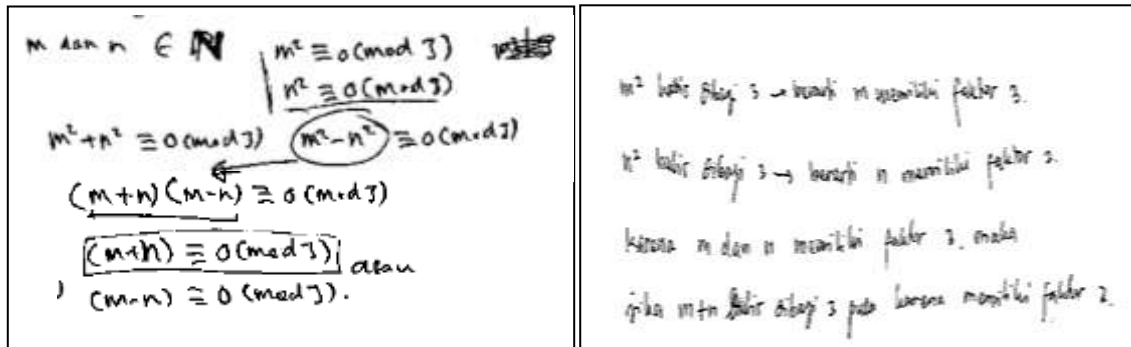 m dan n ∈ N
m² ≡ 0 (mod 3)
n² ≡ 0 (mod 3)
m² + n² ≡ 0 (mod 3) m² - n² ≡ 0 (mod 3)
(m+n) (m-n) ≡ 0 (mod 3)
(m+n) ≡ 0 (mod 3) atau
(m-n) ≡ 0 (mod 3).
m² habis dibagi 3 → berarti m memiliki faktor 3.
n² habis dibagi 3 → berarti n memiliki faktor 3.
karena m dan n memiliki faktor 3, maka
jika m+n habis dibagi 3 pula karena memiliki faktor 3.